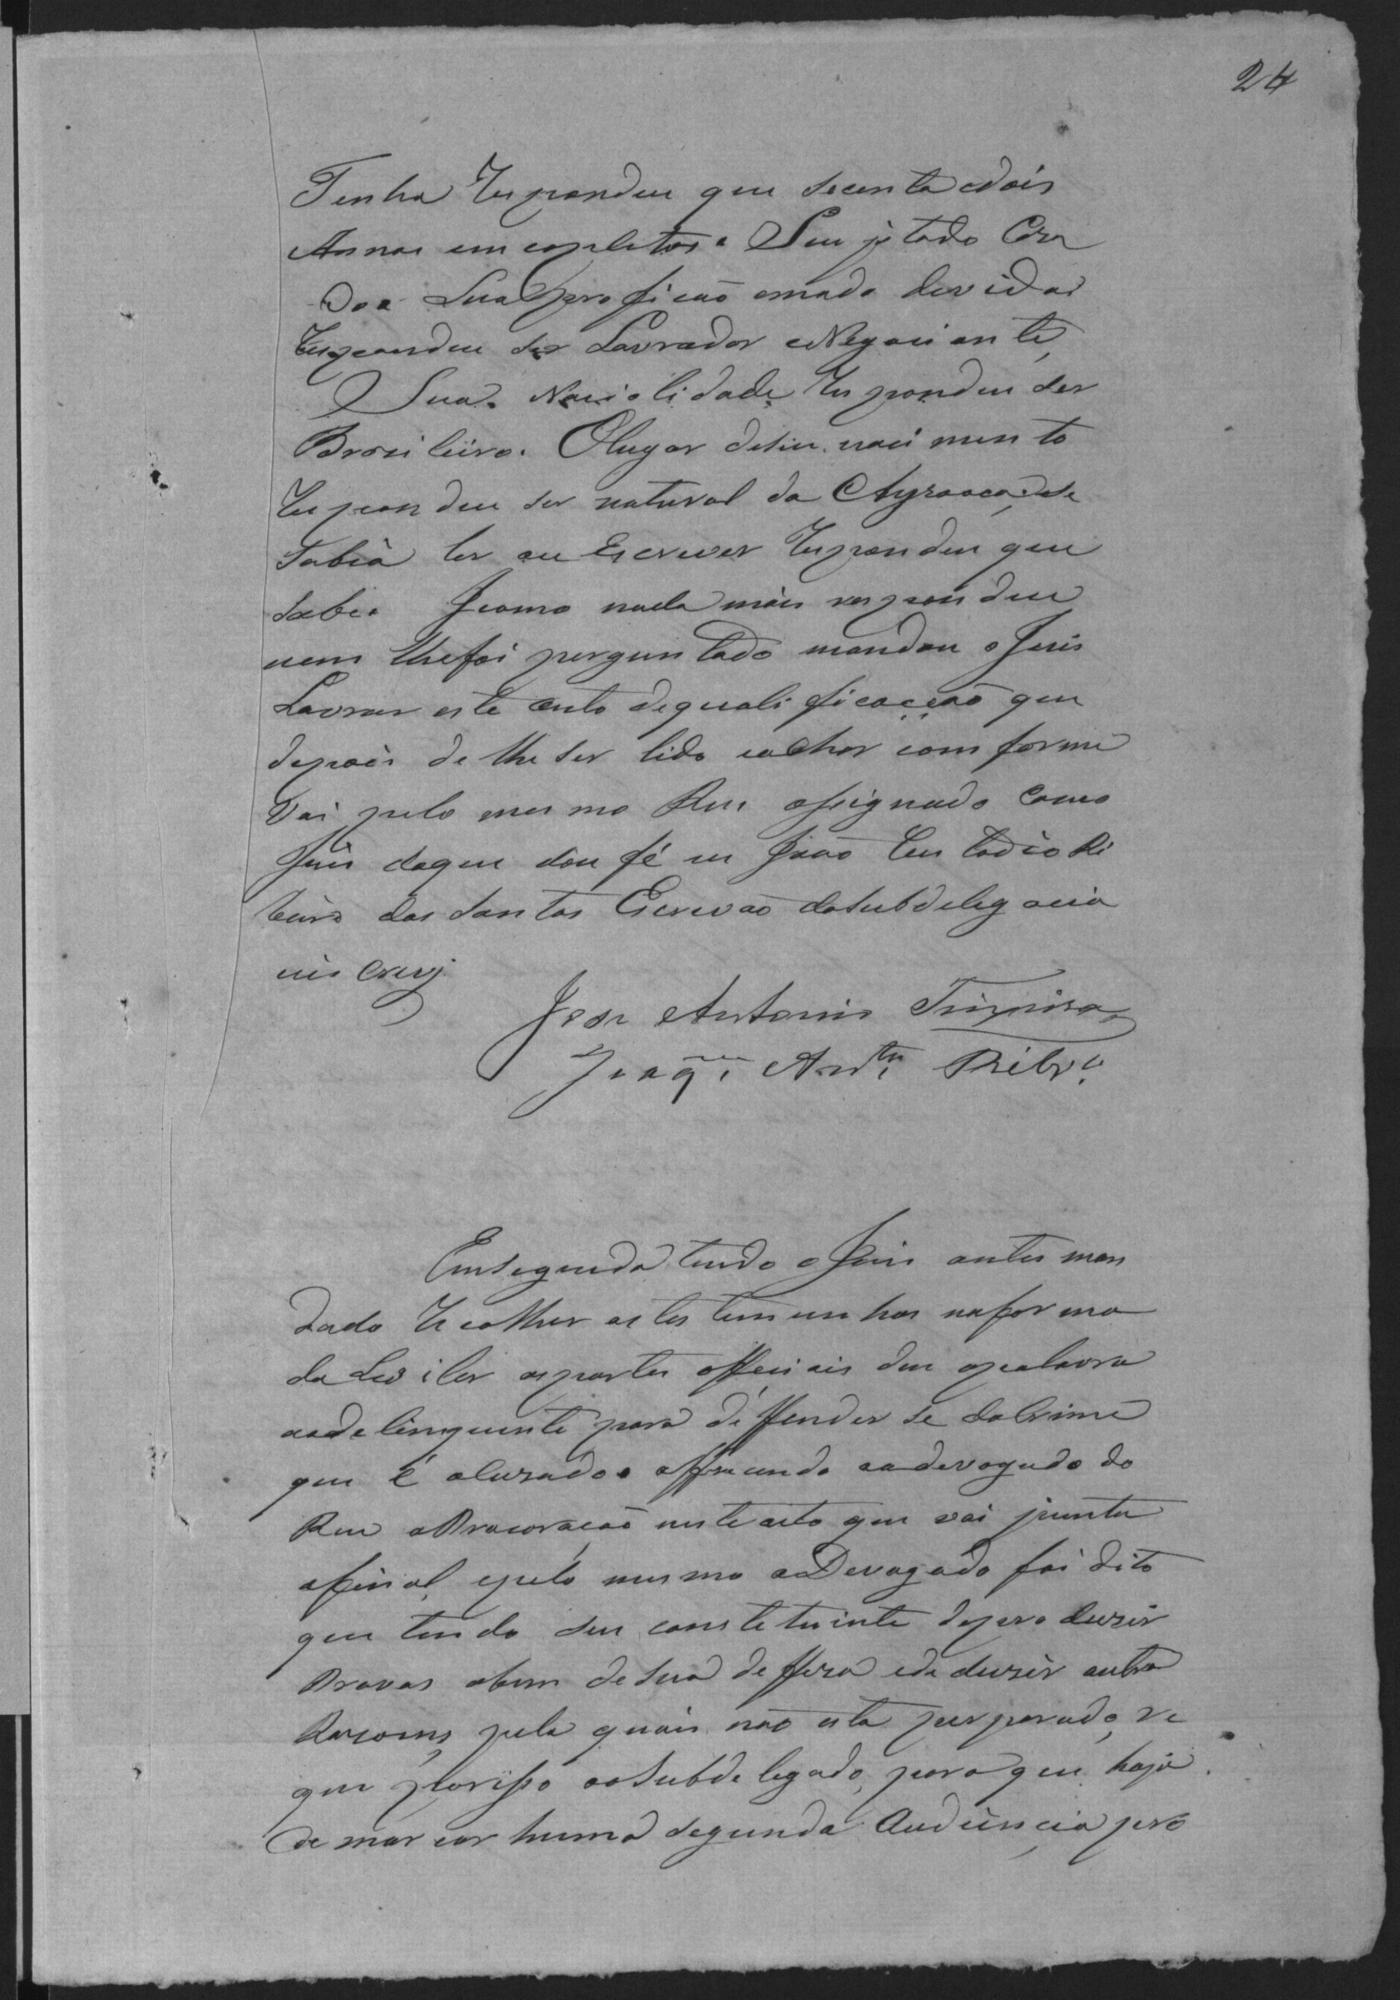 24
Tenha Respondeu que secenta edois
Annos emcopletos. Seu estado Caza
do. Sua proficaõ omodo devida
Respondeu ser Lavrador eNegociante,
Sua Naciolidade Respondeu ser
Brazileiro. Olugar deseu nacimento
Respondeu ser natural da Ayuroca, se
Sabia ler ou Escrever Respondeu que
sabe. Ecomo nada mais respondeu
nem lhefoi perguntado mandou o Juis
Lavrar este auto dequalificaçaõ que
depois de lhe ser lido eachar comforme
vai pelo mesmo Reu assignado Como
Juis doque dou fé eu Joaõ Custodio Ri
beiro dos Santos Escrivaõ dasubdelegacia
Jose Antonio
Joaqm Anto Ribro
Emseguida tendo o Juis antes man
dado Recolher astestemunhas naforma
da Lei eler aspartes officiais deu apalavra
aodelinquente para déffender se doCrime
que é acuzado. offrecendo oadevogado do
Reu aProcoraçaõ neste acto que vai junta
afinal, epelo mesmo aDevogado foi dito
que tendo seu constetuinte deproduzir
Provas abem desua deffeza ededuzir outra
Razoens pela quais não esta perparado, re
quer porisso aosubdelegado, para que haja
de marcar huma segunda Audiencia para